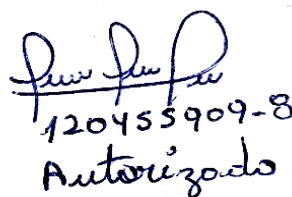 120455909-8
Autorizado